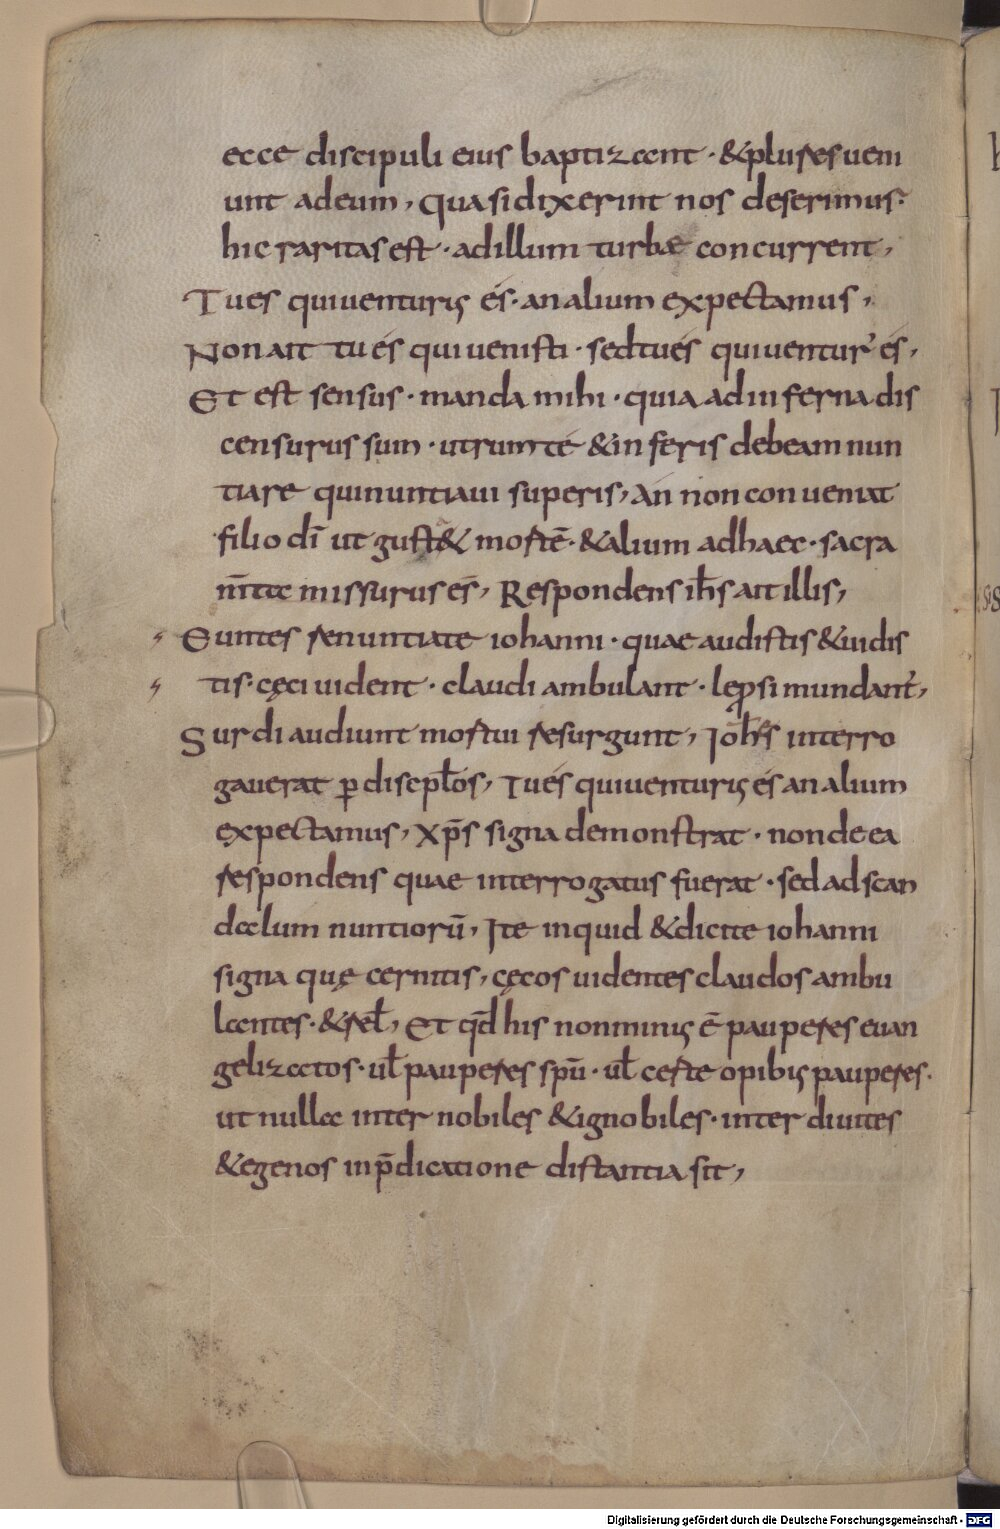 ecce discipuli eius baptizant · & plures ueni
unt adeum, quasidixerint nos deserimus·
hic raritas est · adillum turbae concurrent,
Tues quiuenturus és· an alium expectamus,
Non ait tu és qui uenisti · sed tu és qui uentur' és,
Et est sensus · manda mihi · quia ad inferna dis
censurus sum · utrum té & inferis debeam nun
tiare qui nuntiaui superis, an non conueniat
filio dī ut gust& mortē· & alium ad haec · sacra
m̄ta missurus és, Respondens ih̄s ait illis,
Euntes renuntiate iohanni · quae audistis & uidis
tis· cęci uident · claudi ambulant · leprosi mundant',
Surdi audiunt mortui resurgunt, Ioh̄s interro
gauerat ꝑ discpl̄os, Tu és qui uenturus és an alium
expectamus, Xp̄s signa demonstrat · non de ea
respondens quae interrogatus fuerat · sed ad scan
dalum nuntiorū, Ite inquid & dicite iohanni
signa quę cernitis, cęcos uidentes claudos ambu
lantes · & rel̄, Et qd̄ his non minus ē pauperes euan
gelizatos · ul̄ pauperes spū · ul̄ certe opibus pauperes·
ut nulla inter nobiles & ignobiles · inter diuites
& egenos in p̄dicatione distantia sit,
Digitalisierung gefördert durch die Deutsche Forschungsgemeinschaft - DFG